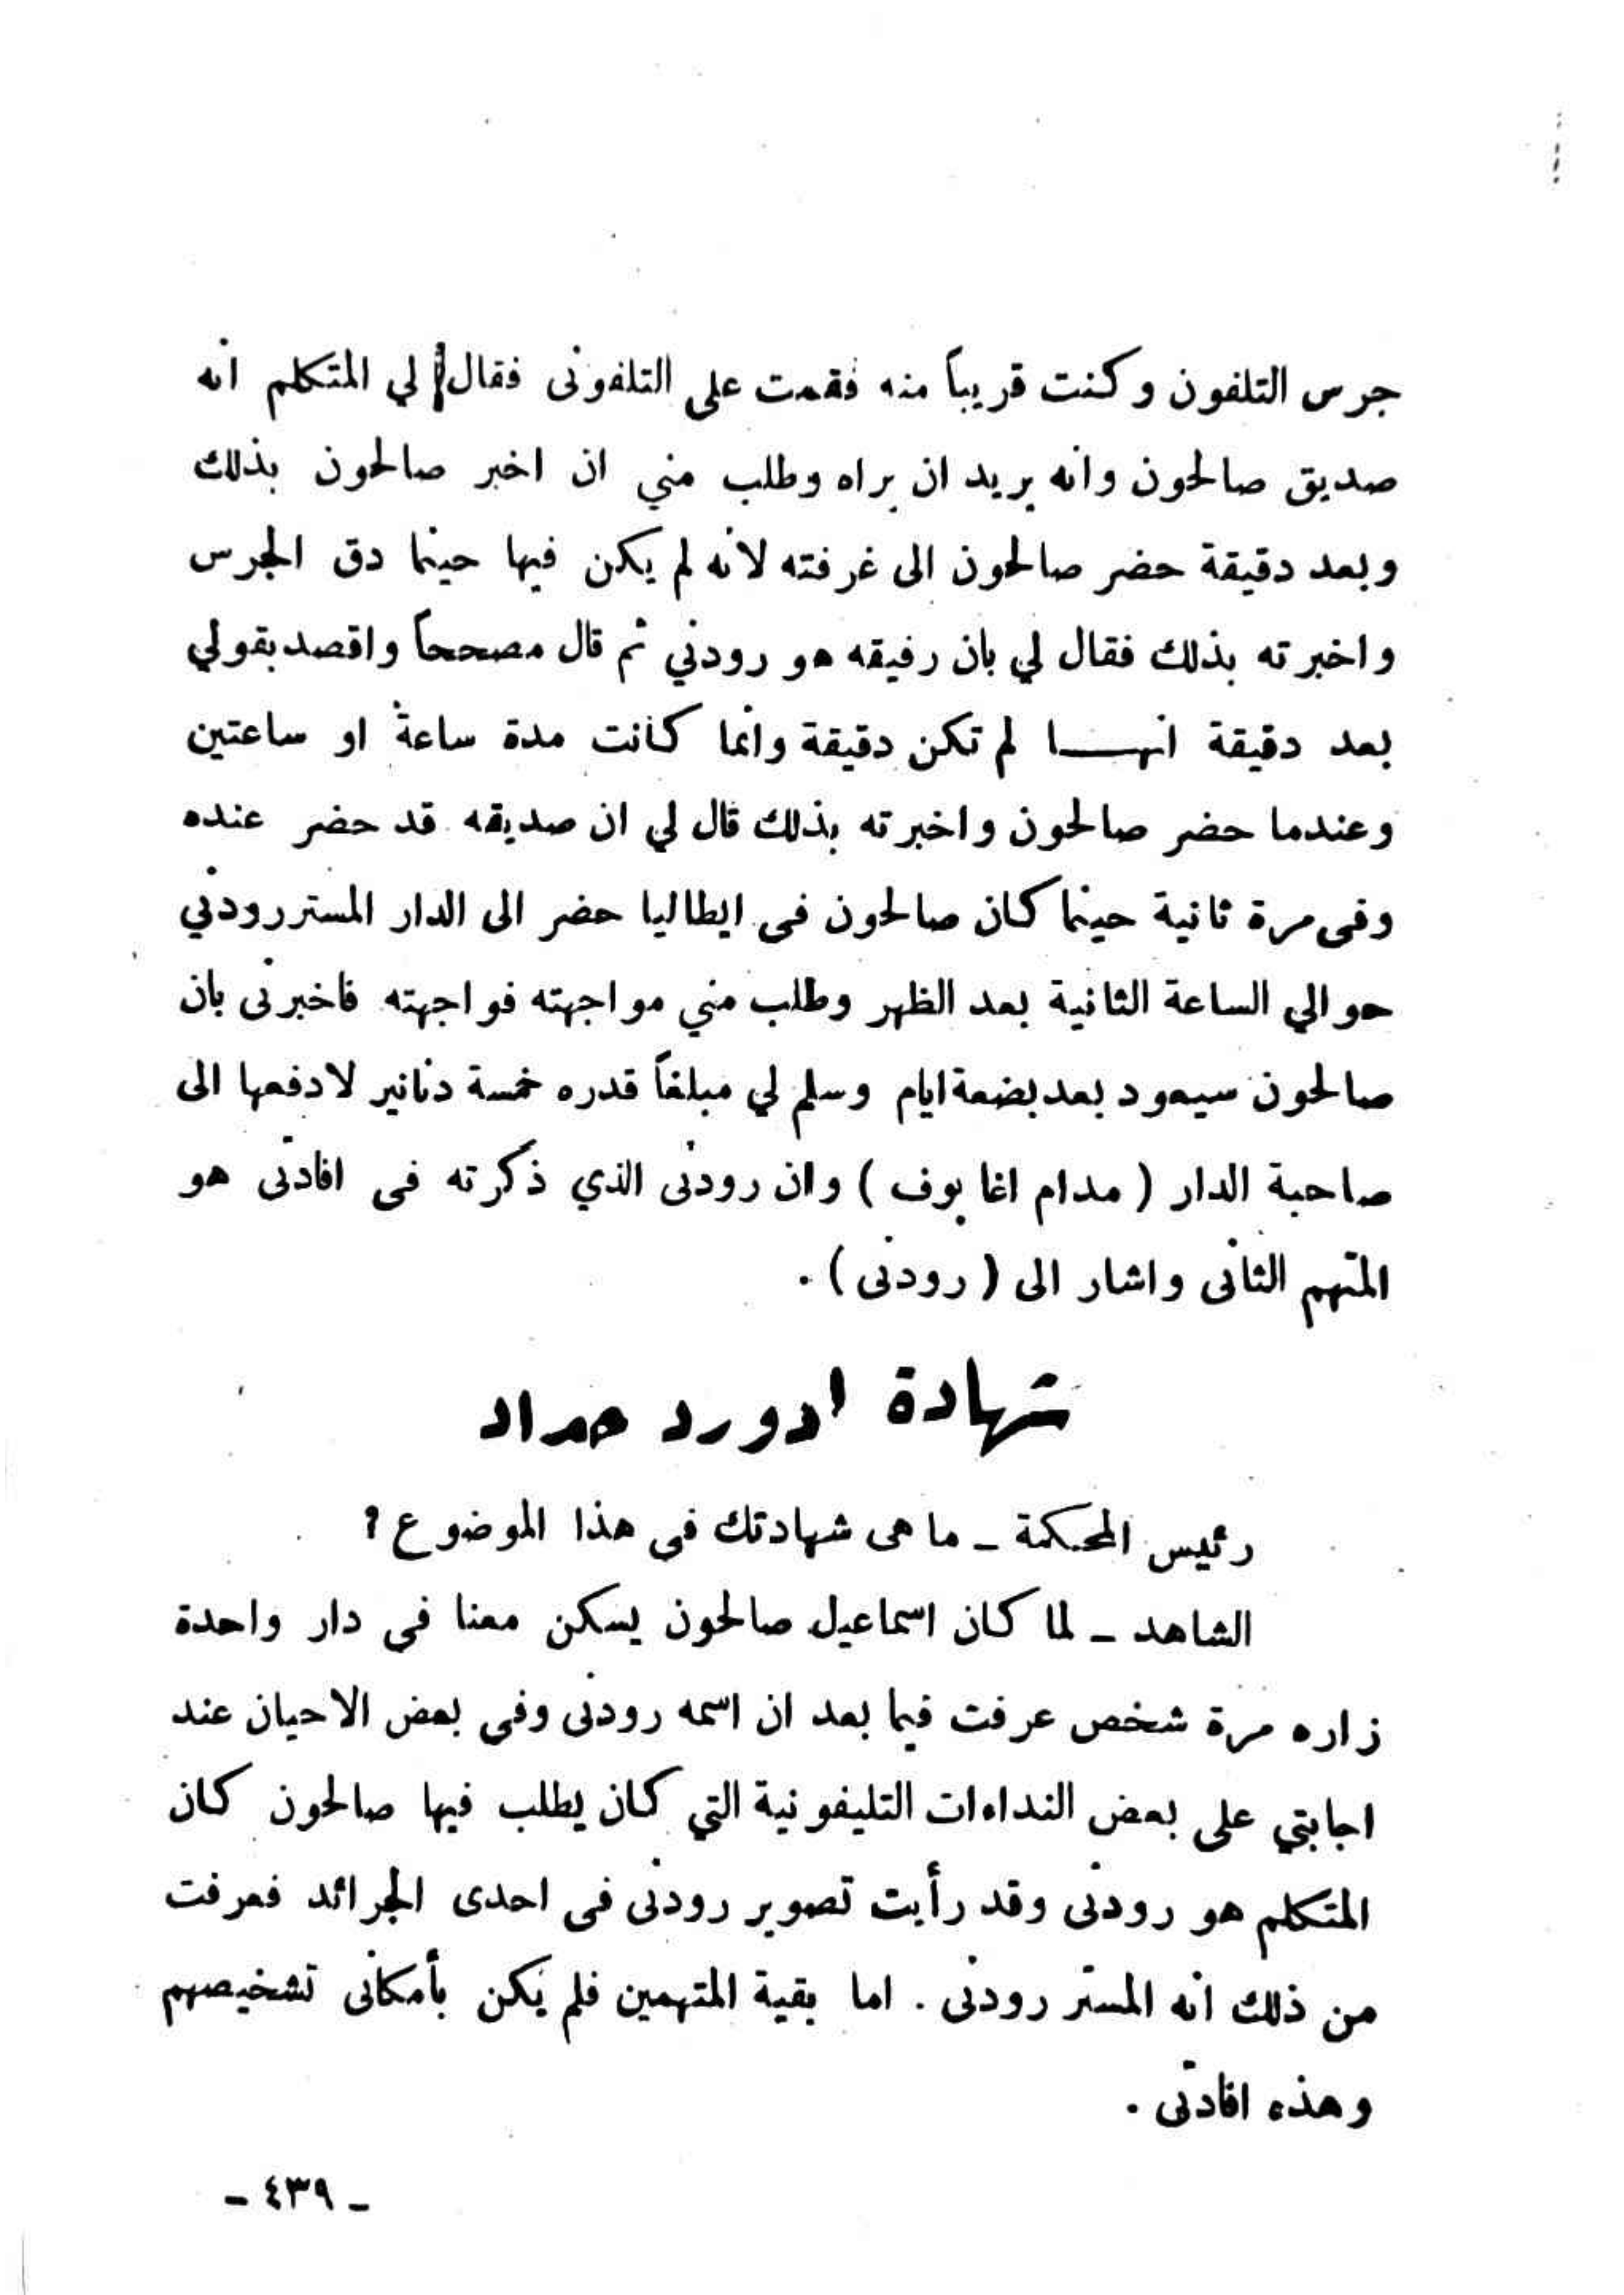 جرس التلفون وكنت قريباً منه فقمت على التلفونى فقال لي المتكلم انه
صديق صالحون وانه يريد ان يراه وطلب مني ان اخبر صالحون بذلك
وبعد دقيقة حضر صالحون الى غرفته لانه لم يكن فيها حينما دق الجرس
واخبرته بذلك فقال لي بان رفيقه هو رودني ثم قال مصححاً واقصد بقولي
بعد دقيقة انهــــا لم تكن دقيقة وانما كانت مدة ساعة او ساعتين
وعندما حضر صالحون واخبرته بذلك قال لي ان صديقه قد حضر عنده
وفى مرة ثانية حينما كان صالحون فى ايطاليا حضر الى الدار المستر رودني
حوالي الساعة الثانية بعد الظهر وطلب مني مواجهته فواجهته فاخبرنى بان
صالحون سيعود بعد بضعة ايام وسلم لي مبلغاً قدره خمسة دنانير لادفعها الى
صاحبة الدار ( مدام اغا بوف ) وان رودنى الذي ذكرته فى افادتى هو
المتهم الثانى واشار الى ( رودنى ) .
شهادة ادورد حداد
رئيس المحكمة ـ ما هى شهادتك فى هذا الموضوع ؟
الشاهد ـ لما كان اسماعيل صالحون يسكن معنا في دار واحدة
زاره مرة شخص عرفت فيما بعد ان اسمه رودنى وفى بعض الاحيان عند
اجابتي على بعض النداءات التليفونية التي كان يطلب فيها صالحون كان
المتكلم هو رودنى وقد رأيت تصوير رودنى فى احدى الجرائد فعرفت
من ذلك انه المستر رودنى . اما بقية المتهمين فلم يكن بأمكانى تشخيصهم
وهذه افادتى .
ـ ٤٣٩ ـ